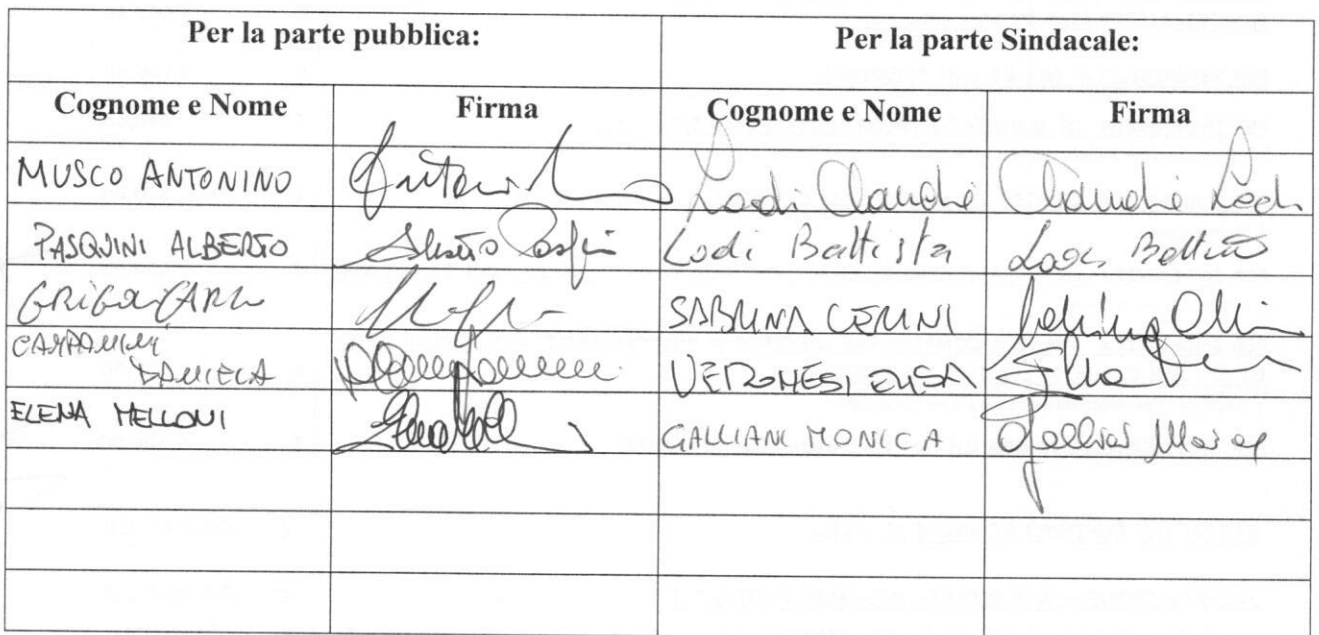 Per la parte pubblica: Per la parte Sindacale:
Cognome e Nome Firma Cognome e Nome Firma
MUSCO ANTONINO Lodi Claudia Claudia Lodi
PASQUINI ALBERTO Alberto Lodi Battista Lodi Battista
SABRINA CERINI
CAMPANINI
DANIELA VERONESI ELISA Elisa
ELENA MELLONI GALLIANI MONICA Galliani Monica